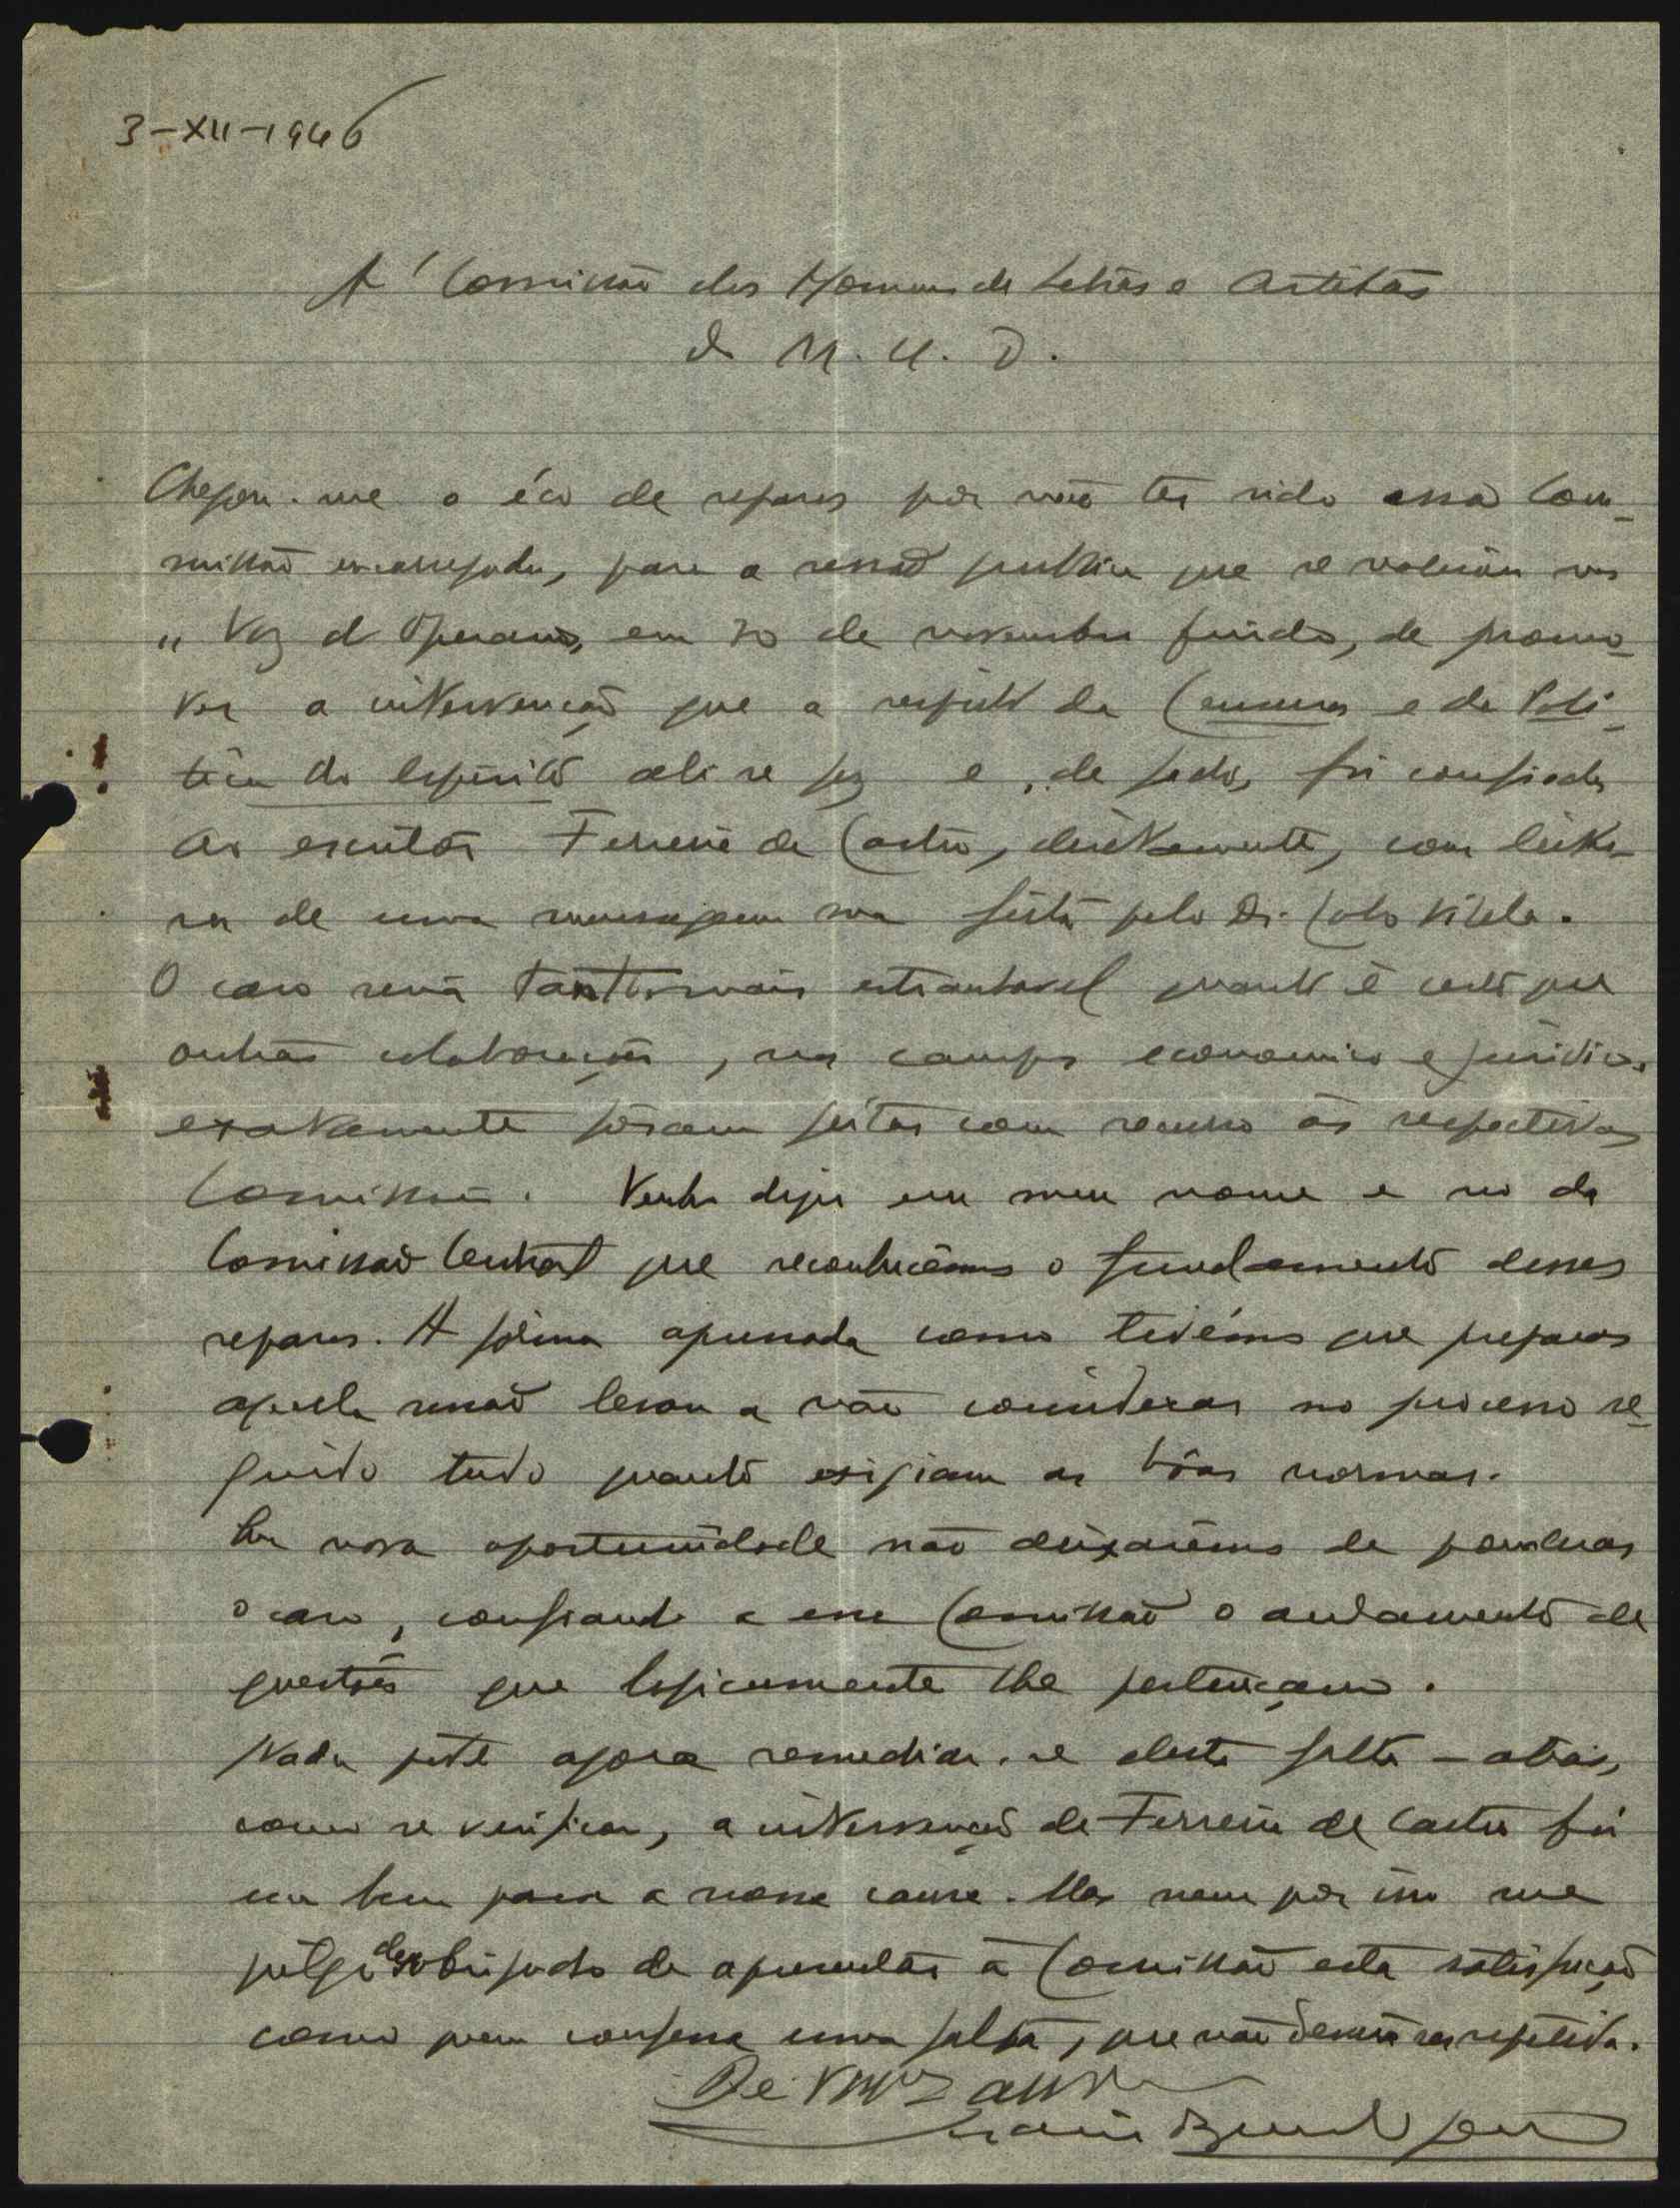 3-XII-1946
A' Comissão dos Homens de Letras e Artistas
do M. U. D.
Chegou-me o éco de reparos por não ter sido essa Com-
missão encarregada, para a sessão publica que se realizou na
"Voz do Operario, em 30 de novembro findo, de promo-
ver a intervenção que a respeito da Censura e da Poli-
tica do Espirito ali se fez e, de facto, foi confiada
ao escritor Ferreira de Castro, directamente, com leitu-
ra de uma mensagem sua feita pelo Dr. Lobo Vilela.
O caso seria tanto mais estranhavel quanto é certo que
outras colaborações, nos campos economico e juridico,
exatamente fôram feitas com recurso ás respectivas
Comissões. Venho dizer em meu nome e no da
Comissão Central que reconhecêmos o fundamento desses
reparos. A fórma apressada como tivémos que preparar
aquela sessão levou a não considerar no processo se-
guido tudo quanto exigiam as bôas normas.
Em nova oportunidade não deixarêmos de ponderar
o caso, confiando a essa Comissão o andamento de
questões que logicamente lhe pertençam.
Nada póde agora remediar-se desta falta - aliás,
como se verificou, a intervenção de Ferreira de Castro foi
um bem para a nossa causa. Mas nem por isso me
julgo desobrigado de apresentar á Comissão esta satisfação
como quem confessa uma falta, que não deverá ser repetida.
De V.